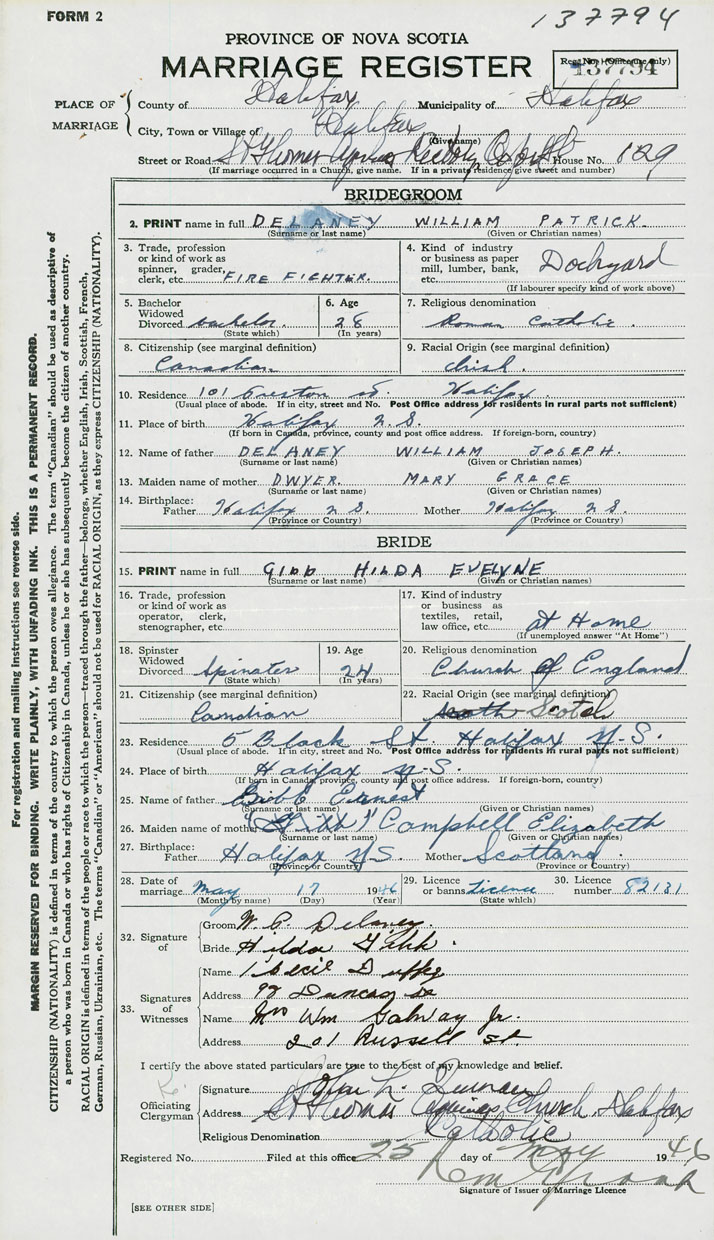 FORM 2
137794
PROVINCE OF NOVA SCOTIA
MARRIAGE REGISTER
Regt. No. (Office use only)
137794
PLACE OF MARRIAGE
County of Halifax Municipality of Halifax
City, Town or Village of Halifax
(Give name)
Street or Road St Thomas Aquinas Rectory Oxford St House No. 129
(If marriage occurred in a Church, give name. If in a private residence, give street and number)
BRIDEGROOM
2. PRINT name in full DELANEY WILLIAM PATRICK.
(Surname or last name) (Given or Christian names)
3. Trade, profession or kind of work as spinner, grader, clerk, etc. FIRE FIGHTER.
4. Kind of industry or business as paper mill, lumber, bank, etc. Dockyard
(If labourer specify kind of work above)
5. Bachelor Widowed Divorced bachelor.
(State which)
6. Age 28
(In years)
7. Religious denomination Roman Catholic.
8. Citizenship (see marginal definition) Canadian.
9. Racial Origin (see marginal definition) Irish.
10. Residence 101 St Halifax
(Usual place of abode. If in city, street and No. Post Office address for residents in rural parts not sufficient)
11. Place of birth Halifax N.S.
(If born in Canada, province, county and post office address. If foreign-born, country)
12. Name of father DELANEY WILLIAM JOSEPH.
(Surname or last name) (Given or Christian names)
13. Maiden name of mother DWYER. MARY GRACE
(Surname or last name) (Given or Christian names)
14. Birthplace: Father Halifax N S. Mother Halifax N S.
(Province or Country) (Province or Country)
BRIDE
15. PRINT name in full GIBB HILDA EVELYNE
(Surname or last name) (Given or Christian names)
16. Trade, profession or kind of work as operator, clerk, stenographer, etc.
17. Kind of industry or business as textiles, retail, law office, etc. at Home
(If unemployed answer "At Home")
18. Spinster Widowed Divorced Spinster
(State which)
19. Age 24
(In years)
20. Religious denomination Church of England
21. Citizenship (see marginal definition) Canadian
22. Racial Origin (see marginal definition) Scotch
23. Residence 5 Black St Halifax N.S.
(Usual place of abode. If in city, street and No. Post Office address for residents in rural parts not sufficient)
24. Place of birth Halifax N.S.
(If born in Canada, province, county and post office address. If foreign-born, country)
25. Name of father Gibb Ernest
(Surname or last name) (Given or Christian names)
26. Maiden name of mother "Gibb" Campbell Elizabeth
(Surname or last name) (Given or Christian names)
27. Birthplace: Father Halifax N.S. Mother Scotland.
(Province or Country) (Province or Country)
28. Date of marriage May 17 1946
(Month by name) (Day) (Year)
29. Licence or banns Licence
(State which)
30. Licence number 82131
32. Signature of
Groom W. P. Delaney.
Bride Hilda Gibb.
33. Signatures of Witnesses
Name Cecil Duffey
Address 92 Duncan St
Name Mrs Wm Galway Jr.
Address 201 Russell St.
I certify the above stated particulars are true to the best of my knowledge and belief.
Officiating Clergyman
Signature John L.
Address St Thomas Aquinas Church, Halifax
Religious Denomination Catholic
Registered No. Filed at this office 25 day of May 1946
Signature of Issuer of Marriage Licence
[SEE OTHER SIDE]
For registration and mailing instructions see reverse side.
MARGIN RESERVED FOR BINDING. WRITE PLAINLY, WITH UNFADING INK. THIS IS A PERMANENT RECORD.
CITIZENSHIP (NATIONALITY) is defined in terms of the country to which the person owes allegiance. The term "Canadian" should be used as descriptive of
a person who was born in Canada or who has rights of Citizenship in Canada, unless he or she has subsequently become the citizen of another country.
RACIAL ORIGIN is defined in terms of the people or race to which the person—traced through the father—belongs, whether English, Irish, Scottish, French,
German, Russian, Ukrainian, etc. The terms "Canadian" or "American" should not be used for RACIAL ORIGIN, as they express CITIZENSHIP (NATIONALITY).